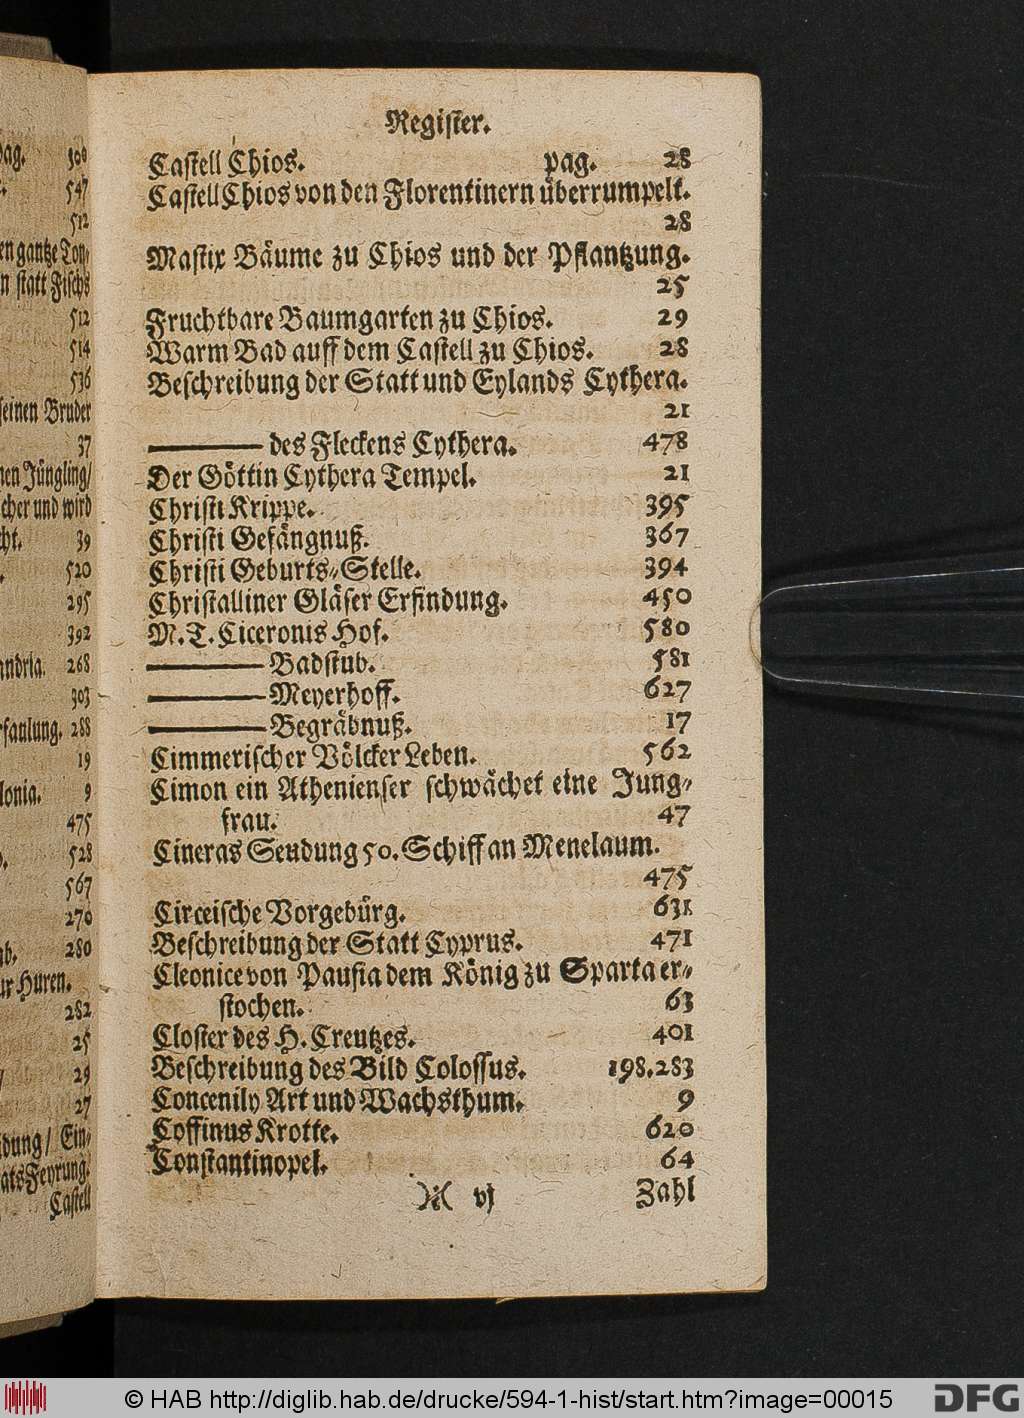 pag. 300
547
512
en gantze Ton-
n statt Fischs
512
514
536
seinen Bruder
37
nen Jüngling/
cher und wird
cht. 39
520
295
392
andria. 268
303
rfaulung. 288
19
lonia. 9
475
528
567
270
280
ur Huren.
282
25
29
27
dung/ Ein-
ats Feyrung.
Castell
Register.
Castell Chios. pag. 28
Castell Chios von den Florentinern überrumpelt.
28
Mastix Bäume zu Chios und der Pflantzung.
25
Fruchtbare Baumgarten zu Chios. 29
Warm Bad auff dem Castell zu Chios. 28
Beschreibung der Statt und Eylands Cythera.
21
——— des Fleckens Cythera. 478
Der Göttin Cythera Tempel. 21
Christi Krippe. 395
Christi Gefängnuß. 367
Christi Geburts-Stelle. 394
Christalliner Gläser Erfindung. 450
M. T. Ciceronis Hof. 580
——— Badstub. 581
——— Meyerhoff. 627
——— Begräbnuß. 17
Cimmerischer Völcker Leben. 562
Cimon ein Athenienser schwächet eine Jung-
frau. 47
Cineras Sendung 50. Schiff an Menelaum.
475
Circeische Vorgebürg. 631
Beschreibung der Statt Cyprus. 471
Cleonice von Pausia dem König zu Sparta er-
stochen. 63
Closter des H. Creutzes. 401
Beschreibung des Bild Colossus. 198.283
Concenily Art und Wachsthum. 9
Coffinus Krotte. 620
Constantinopel. 64
)( vj Zahl
© HAB http://diglib.hab.de/drucke/594-1-hist/start.htm?image=00015 DFG